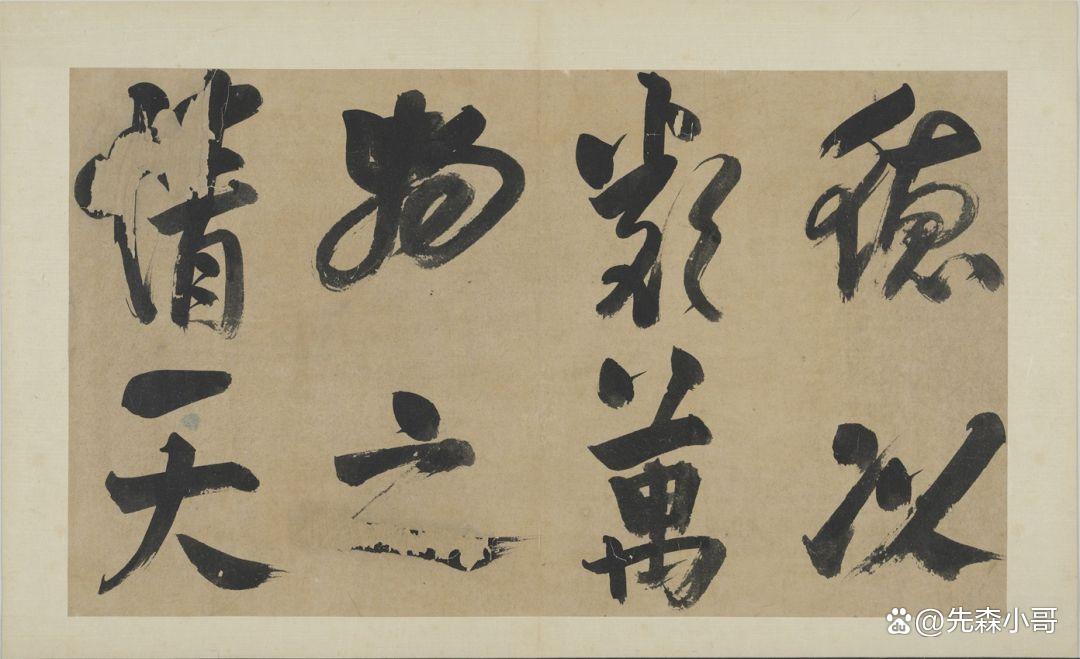 德以
類萬
物之
情天
du @先森小哥